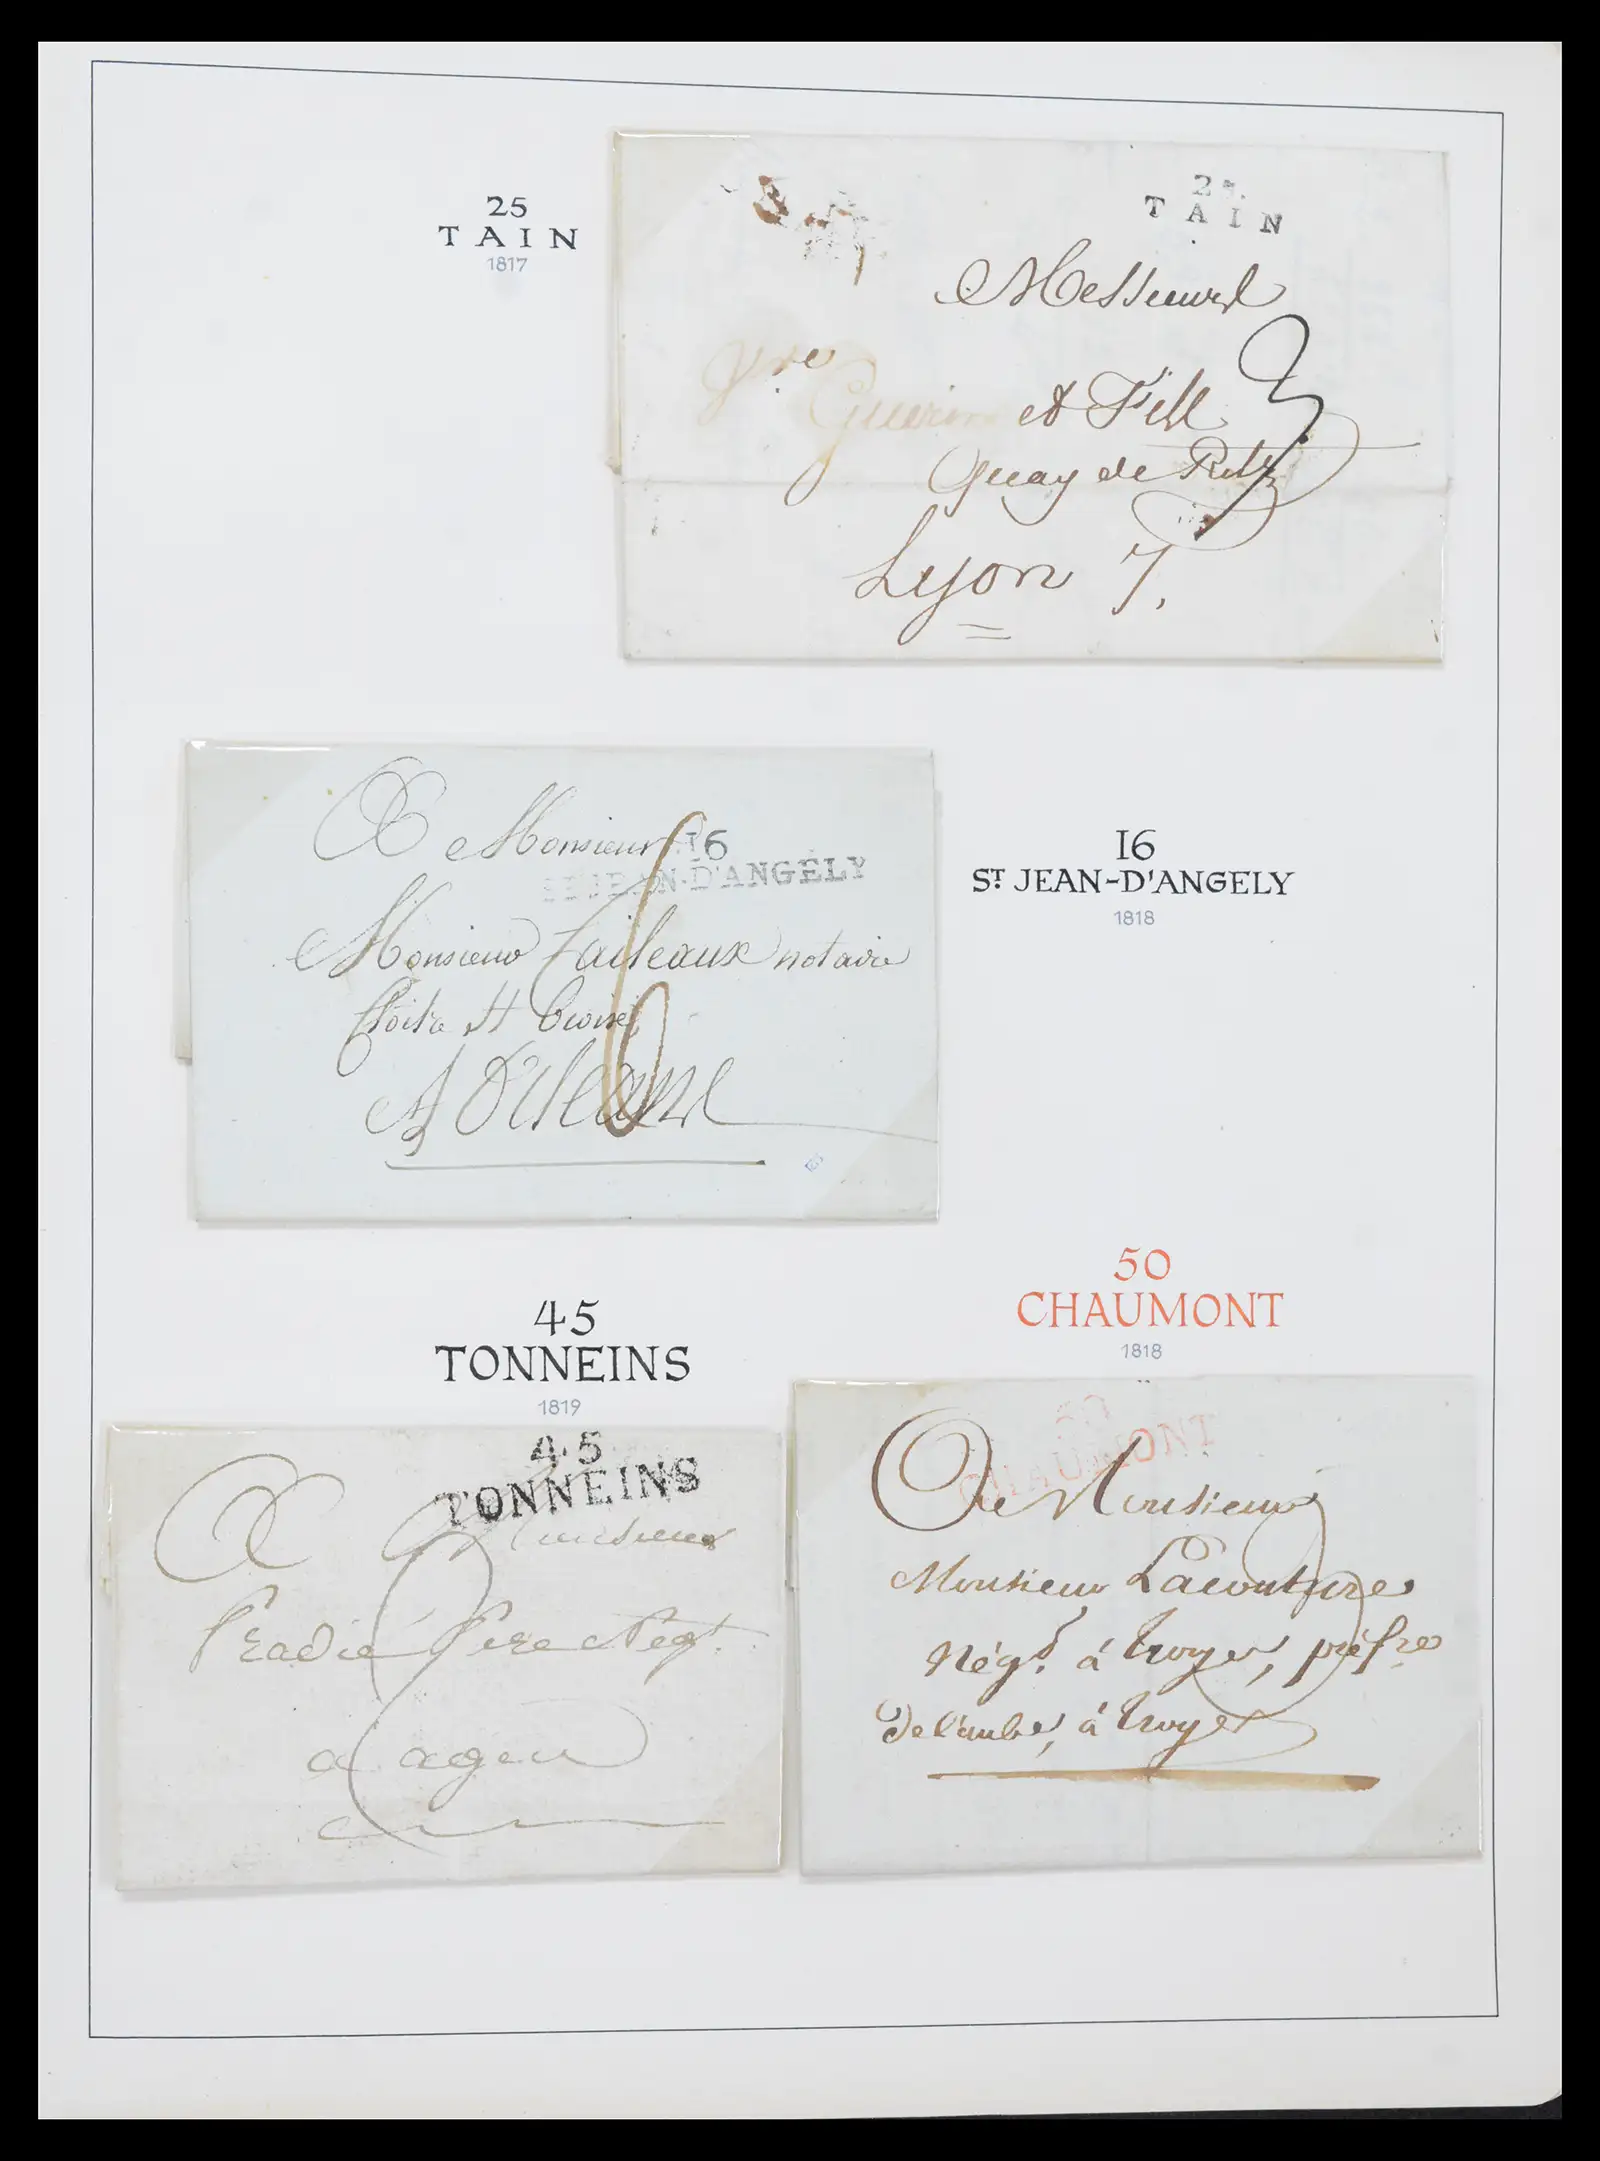 25
TAIN
1817
25.
TAIN
Messieurs
Vve Guerin et Fils
Quay de Retz
Lyon 7.
3
16
ST JEAN-D'ANGELY
1818
16
ST JEAN-D'ANGÉLY
A Monsieur
Monsieur Taileaux notaire
Cloitre St
A Orleans
6
45
TONNEINS
1819
45
TONNEINS
A Monsieur
Pradié Pere Negt.
a agen
2
50
CHAUMONT
1818
50
CHAUMONT
A Monsieur
Monsieur Lacouture
Négt. à troyes, préfre
De l'aube, à troyes